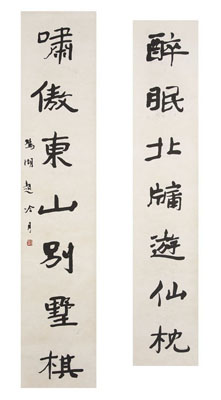 醉眠北牖遊仙枕
嘯傲東山別墅棋
趙冷月